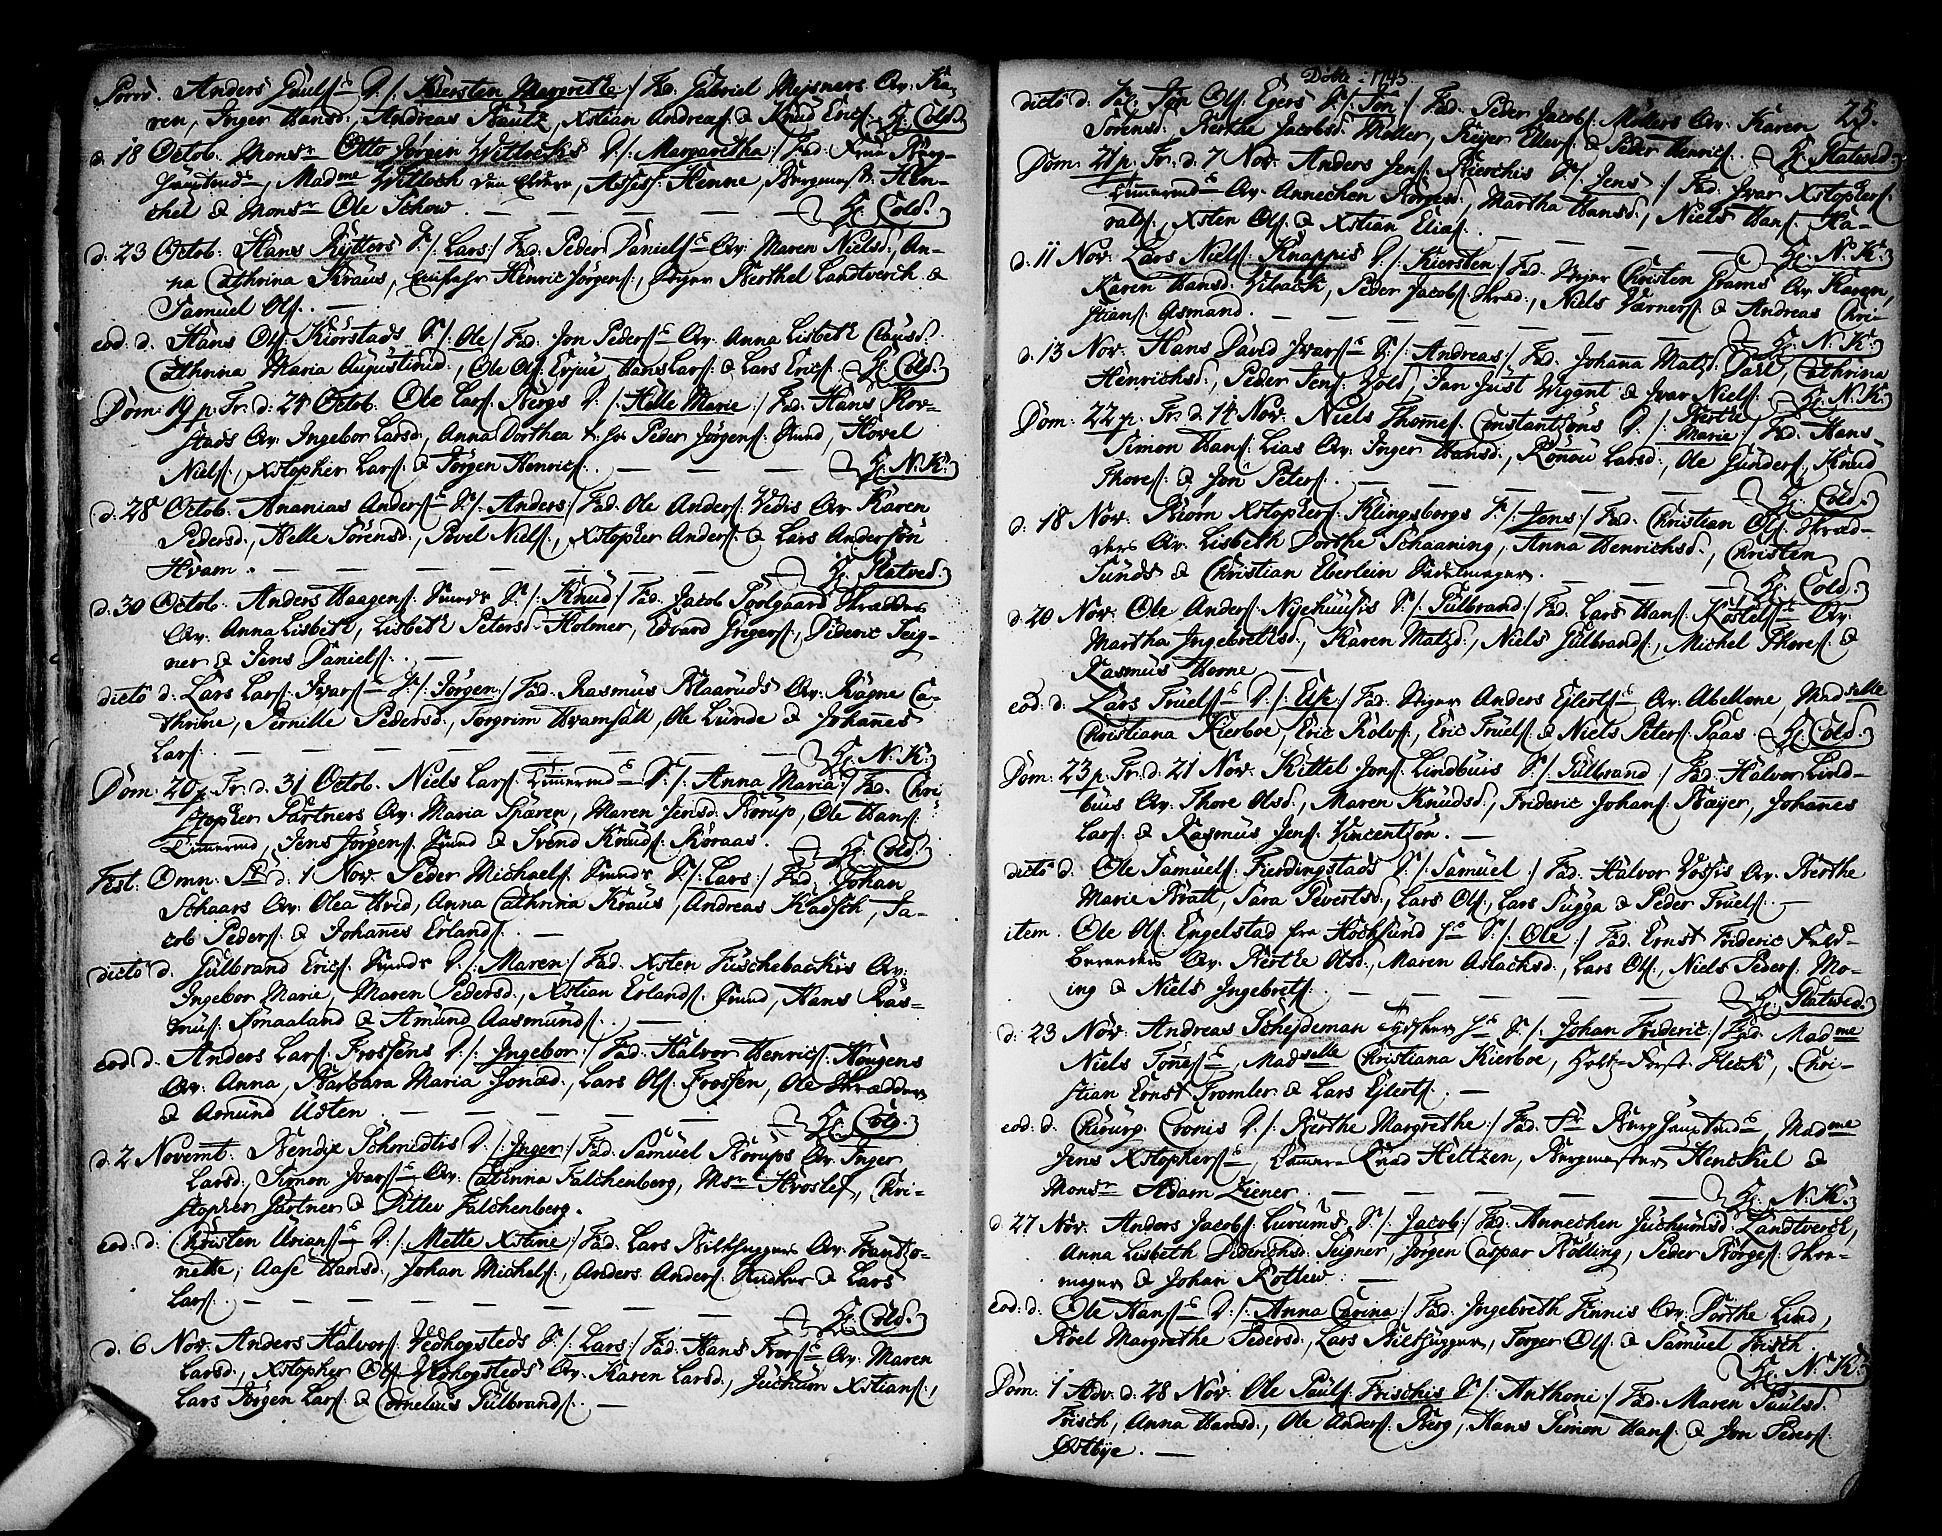 Anders Poulsens D./: Kiersten Margrethe :/ Fad. Gabriel Meisners Qv. Ka-
ren, Inger Hansd., Andreas Bautz, Xstian Andreas. & Knud Erics. H. Cold.
d. 18 Octob. Monsr Otto Jørgen Wittochis D./: Margaretha :/ Fad. Frue Berg-
Hauptmds, Madme Wittoch den Eldere, Assess. Henne, Burgemest. Hen-
chel & Monsr Ole Schow. H. Cold.
d. 23 Octob. Hans Rytters S./: Lars :/ Fad. Peder Daniels. Qv. Maren Nielsd., An-
na Cathrina Kraus, Henric Jørgens., Berthel Landtverch &
Samuel Ols.
eod. d. Hans Ols. Kiørstads S./: Ole :/ Fad. Jon Peders. Qv. Anna Lisbeth Clausd.
Cathrina Maria Augustinid., Ole Ols. Erjue, Hans Lars. & Lars Erics. H. Cold.
Dom. 19 p. Tr. d. 24 Octob. Ole Lars. Bergs D./: Helle Marie :/ Fad. Hans Kor-
stads Qv. Ingebor Larsd., Anna Dorthea Peder Jørgens. Smed, Hovel
Niels., Xstopher Lars. & Jørgen Henrics. H. N. K.
d. 28 Octob. Ananias Anders. S./: Anders :/ Fad. Ole Anders. Vedis Qv. Karen
Pedersd., Helle Sørensd., Povel Niels., Xstopher Anders. & Lars Andersøn
Hvam. H. Statved.
d. 30 Octob. Anders Haagens. Smeds S./: Knud :/ Fad. Jacob Poolgaard Skrædders
Qv. Anna Lisbeth, Lisbeth Petersd. Holmer, Edvard Grigers., Dideric Seig-
ner & Jens Daniels.
dicto d. Lars Lars. Ivars. S./: Jørgen :/ Fad. Rasmus Klaaruds Qv. Ragne Ca-
thrine, Pernille Pedersd., Torgrim Hvamsalt, Ole Lunde & Johannes
Lars. H. N. K.
Dom. 20 p. Tr. d. 31 Octob. Niels Lars. Tømermds S./: Anna Maria :/ Fad. Chri-
stopher Partners Qv. Maria Sparen, Maren Jensd. Borup, Ole Hans.
Tømermd, Jens Jørgens. Smed & Svend Knuds. Roraas. H. Cold.
Fest. Omn. St. d. 1 Nov. Peder Michaels. Smeds S./: Lars :/ Fad. Johan
Schaars Qv. Olea Hvid, Anna Cathrina Kraus, Andreas Kadsch, Ja-
cob Peders. & Johannes Erlands.
dicto d. Gulbrand Erics. Smeds D./: Maren :/ Fad. Xsten Fuschebachis Qv.
Ingebor Marie, Maren Pedersd., Xstian Erlands. Smed, Hans Ras-
mus. Sonaaland & Amund Aasmunds.
eod. d. Anders Lars. Frossens D./: Ingebor :/ Fad. Halvor Henrics. Hougens
Qv. Anna, Barbara Maria Jonæd., Lars Ols. Frossen, Ole Skrædder
& Amund Usten. H. Cold.
d. 2 Novemb. Bendix Schmidtis D./: Inger :/ Fad. Samuel Borups Qv. Inger
Larsd., Simon Ivars. Qv. Catrina Falchenberg, Msr Hvoslef, Chri-
stopher Partner & Ditlev Falchenberg.
eod. d. Christen Urians. D./: Mette Xstine :/ Fad. Lars Bilthuggers Qv. Frantzo-
nette, Aase Hansd., Johan Michels., Anders Anders. & Lars
Lars. H. Cold.
d. 6 Nov. Anders Halvors. Vedhogsteds S./: Lars :/ Fad. Hans Ivers. Qv. Maren
Larsd., Xstopher Ols. Vedhogsteds Qv. Karen Larsd., Juchum Xstians.,
Lars Jørgen Lars. & Cornelius Gulbrands.
Døbte 1745.
25.
dicto d. Fal. Jon Ols. Egers S./: Jon :/ Fad. Peder Jacobs. Møllers Qv. Karen
Sørensd., Berthe Jacobsd. Møller, Reyer Ellevs. & Peder Henrics. H. Statved.
Dom. 21 p. Tr. d. 7 Nov. Anders Jens. Bierchis S./: Jens :/ Fad. Ivar Xstophers.
Tømermds Qv. Annechen Børgesd., Martha Hansd., Niels Hans. Ha-
rals., Xsten Ols. & Xstian Elias. H. N. K.
d. 11 Nov. Lars Niels. Knappis D./: Kiersten :/ Fad. Christen Grams Qv. Karen,
Karen Hansd. Vibach, Peder Jacobs. Skræd., Niels Værners. & Andreas Chri-
stians. Asmand. H. N. K.
d. 13 Nov. Hans David Ivars. S./: Andreas :/ Fad. Johana Matzd. Dahl, Cathrina
Henrichsd., Peder Jens. Vold, Jan Just Wigant & Ivar Niels. H. N. K.
Dom. 22 p. Tr. d. 14 Nov. Niels Thomes. Constantzøns D./: Berthe
Marie :/ Fad. Hans
Simon Hans. Lias Qv. Inger Hansd., Rønou Larsd., Ole Gunders., Knud
Thores. & Jon Peters. H. Cold.
d. 18 Nov. Biørn Xstophers. Klingsbergs S./: Jens :/ Fad. Christian Ols. Skræd-
ders Qv. Lisbeth Dorthe Schaaning, Anna Henrichsd., Christen
Sunds & Christian Eberlein Sadelmager. H. Cold.
d. 20 Nov. Ole Anders. Nyehuusis S./: Gulbrand :/ Fad. Lars Hans. Kostels. Qv.
Martha Ingebrethsd., Karen Matzd., Niels Gulbrands., Michel Thores. &
Rasmus Horne.
eod. d. Lars Truels. D./: Else :/ Fad. Anders Ejlerts. Qv. Abellone, Madselle
Christiana Kierboe, Eric Rolvs., Eric Truels. & Niels Peters. Paas. H. Cold.
Dom. 23 p. Tr. d. 21 Nov. Kittel Jons. Lindbuis S./: Gulbrand :/ Fad. Halvor Lind-
buis Qv. Thore Olsd., Maren Knudsd., Frideric Johans. Bayer, Johannes
Lars. & Rasmus Jens. Vincentzøn.
dicto d. Ole Samuels. Fierdingstads S./: Samuel :/ Fad. Halvor Vossis Qv. Berthe
Marie Bratt, Sara Severtsd., Lars Ols., Lars Sugga & Peder Truels.
item. Ole Ols. Engelstad fra Hochsund S./: Ole :/ Fad. Ernst Frideric Kuld-
brenders Qv. Berthe Olsd., Maren Aslachsd., Lars Ols., Niels Peders. Mo-
ing & Niels Ingebrets. H. Statved.
d. 23 Nov. Andreas Scheydeman Tydsker S./: Johan Frideric :/ Fad. Madme
Niels Tønes., Madselle Christiana Kierboe, Holtz-Førster Fleck, Chri-
stian Ernst Tromler & Lars Ejlerts.
eod. d. Chirurg. Cronis D./: Berthe Margrethe :/ Fad. Fr. Berghauptmds, Madme
Jens Xstophers., Kammer-Raad Heltzen, Bergmester Henckel &
Monsr Adam Ziener. H. N. K.
d. 27 Nov. Anders Jacobs. Lurums S./: Jacob :/ Fad. Annechen Juchumsd. Landtverch,
Anna Lisbeth Diderichsd. Seigner, Jørgen Caspar Rølling, Peder Børges. Skræ-
mager & Johan Rottew.
eod. d. Ole Hans. D./: Anna Carina :/ Fad. Ingebreth Finnis Qv. Dorthe Lind,
Roel Margrethe Pedersd., Lars Bilthugger, Torger Ols. & Samuel Frisch.
H. N. K.
Dom. 1 Adv. d. 28 Nov. Ole Pauls. Frischis S./: Anthoni :/ Fad. Maren Paulsd.
Frisch, Anna Hansd., Ole Anders. Berg, Hans Simon Hans. & Jon Peders.
Østbye.